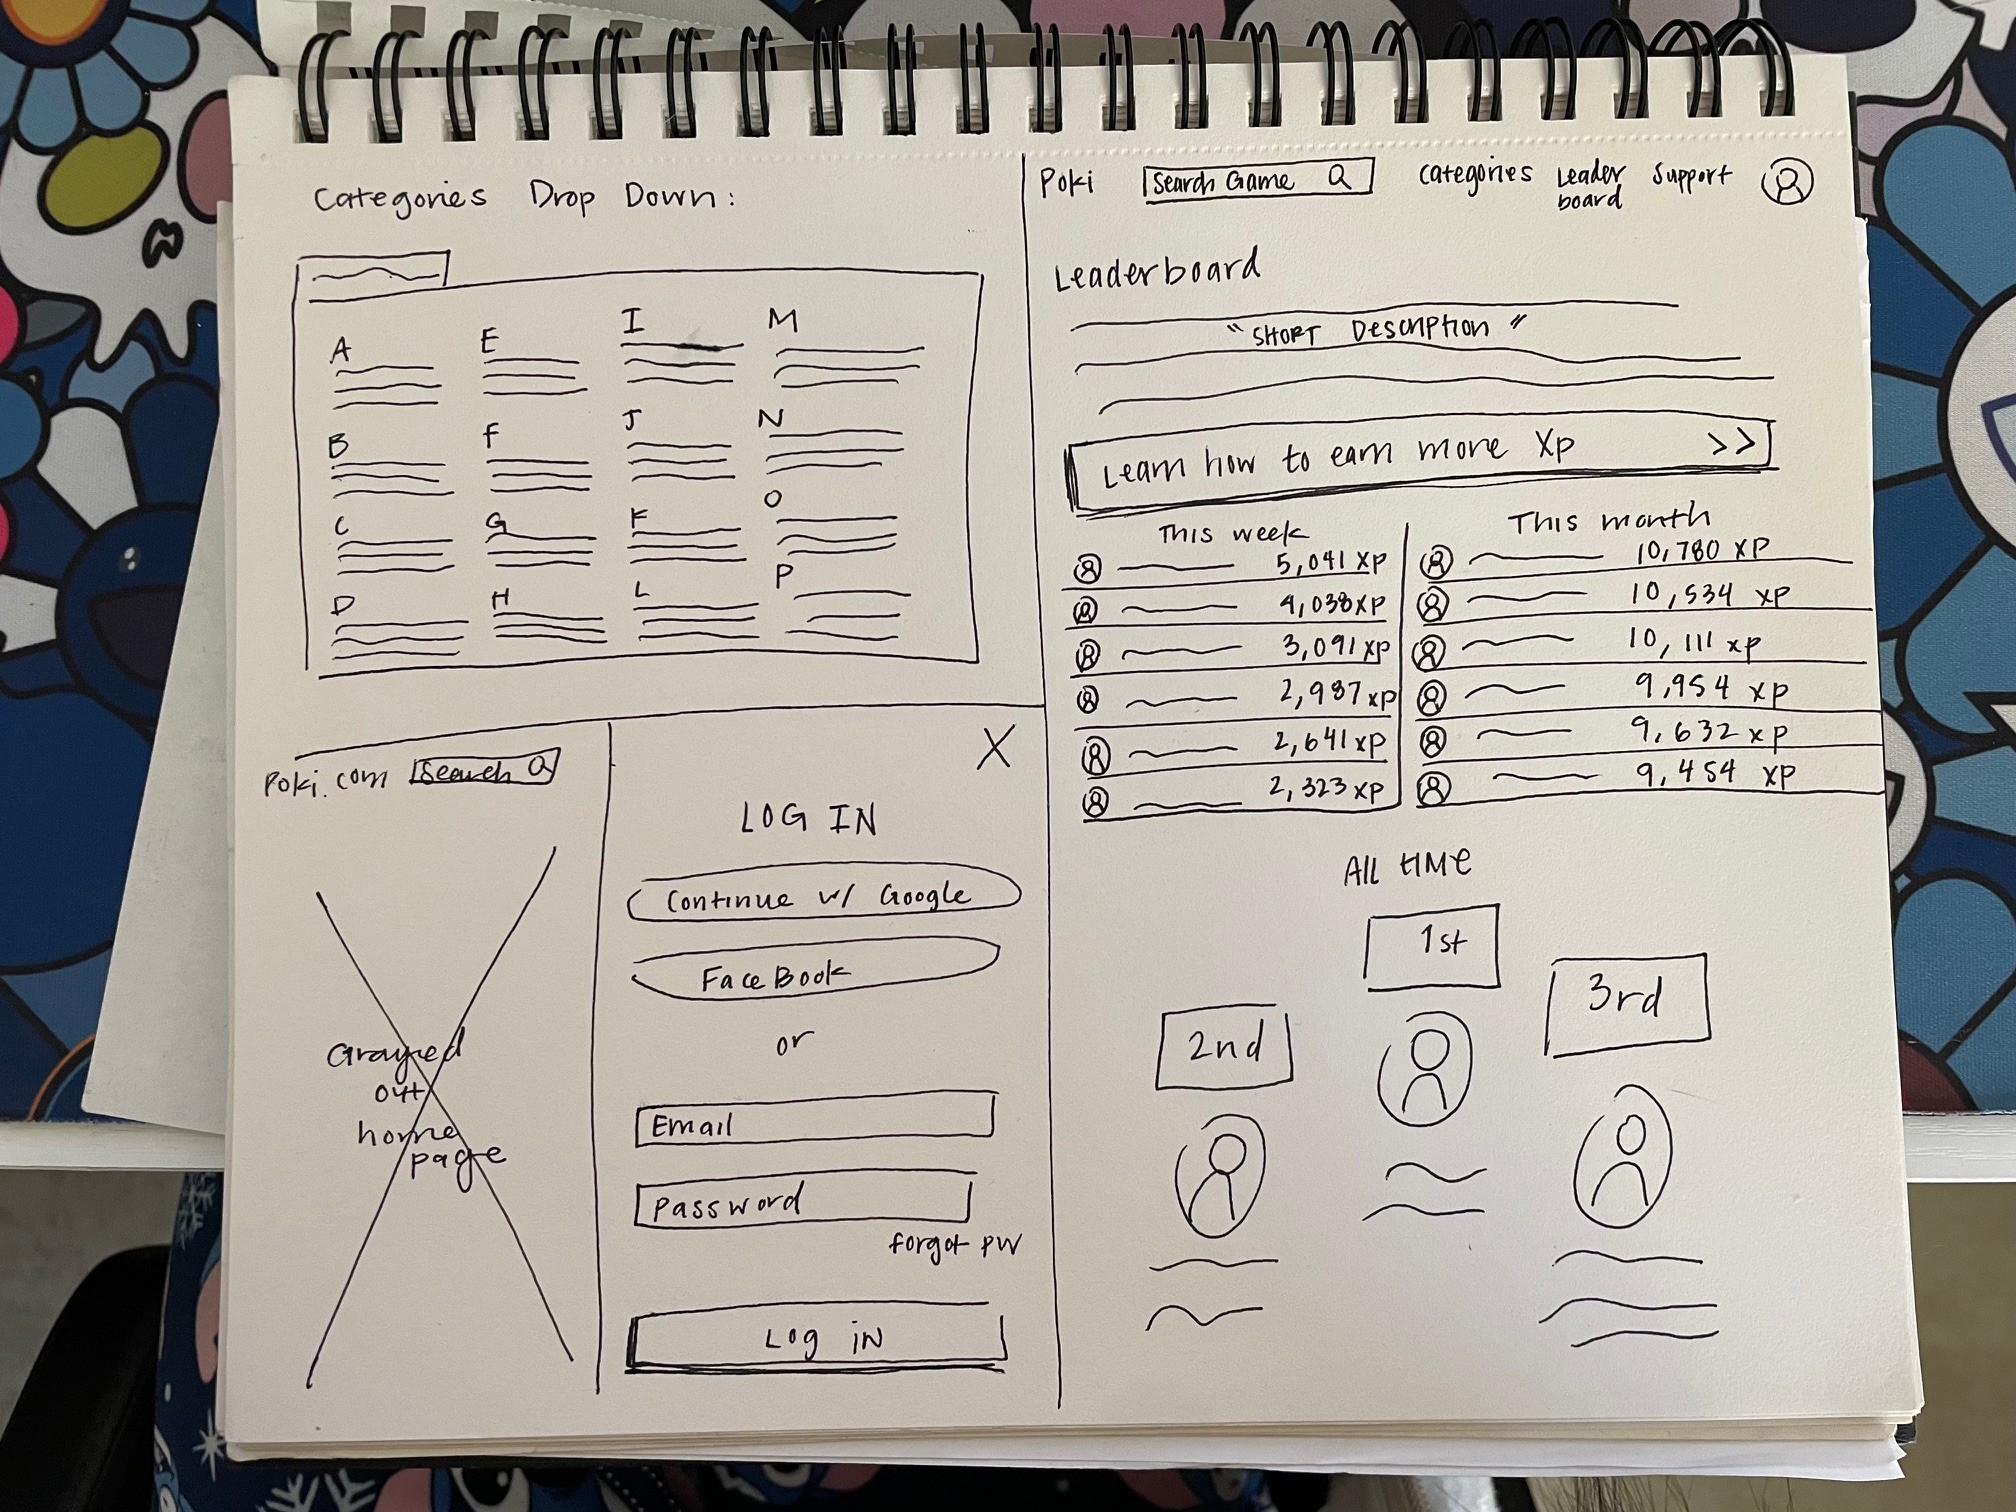 Categories Drop Down:
A
B
C
D
E
F
G
H
I
J
K
L
M
N
O
P
Poki.com Search
Grayed
out
home
page
X
LOG IN
Continue w/ Google
FaceBook
or
Email
Password
forgot pw
Log iN
Poki Search Game categories Leader board Support
Leaderboard
"SHORT Description"
Learn how to earn more Xp >>
This week
5,041 XP
4,038 XP
3,091 XP
2,987 XP
2,641 XP
2,323 XP
This month
10,780 XP
10,534 XP
10,111 XP
9,954 XP
9,632 XP
9,454 XP
All tIMe
1st
2nd
3rd